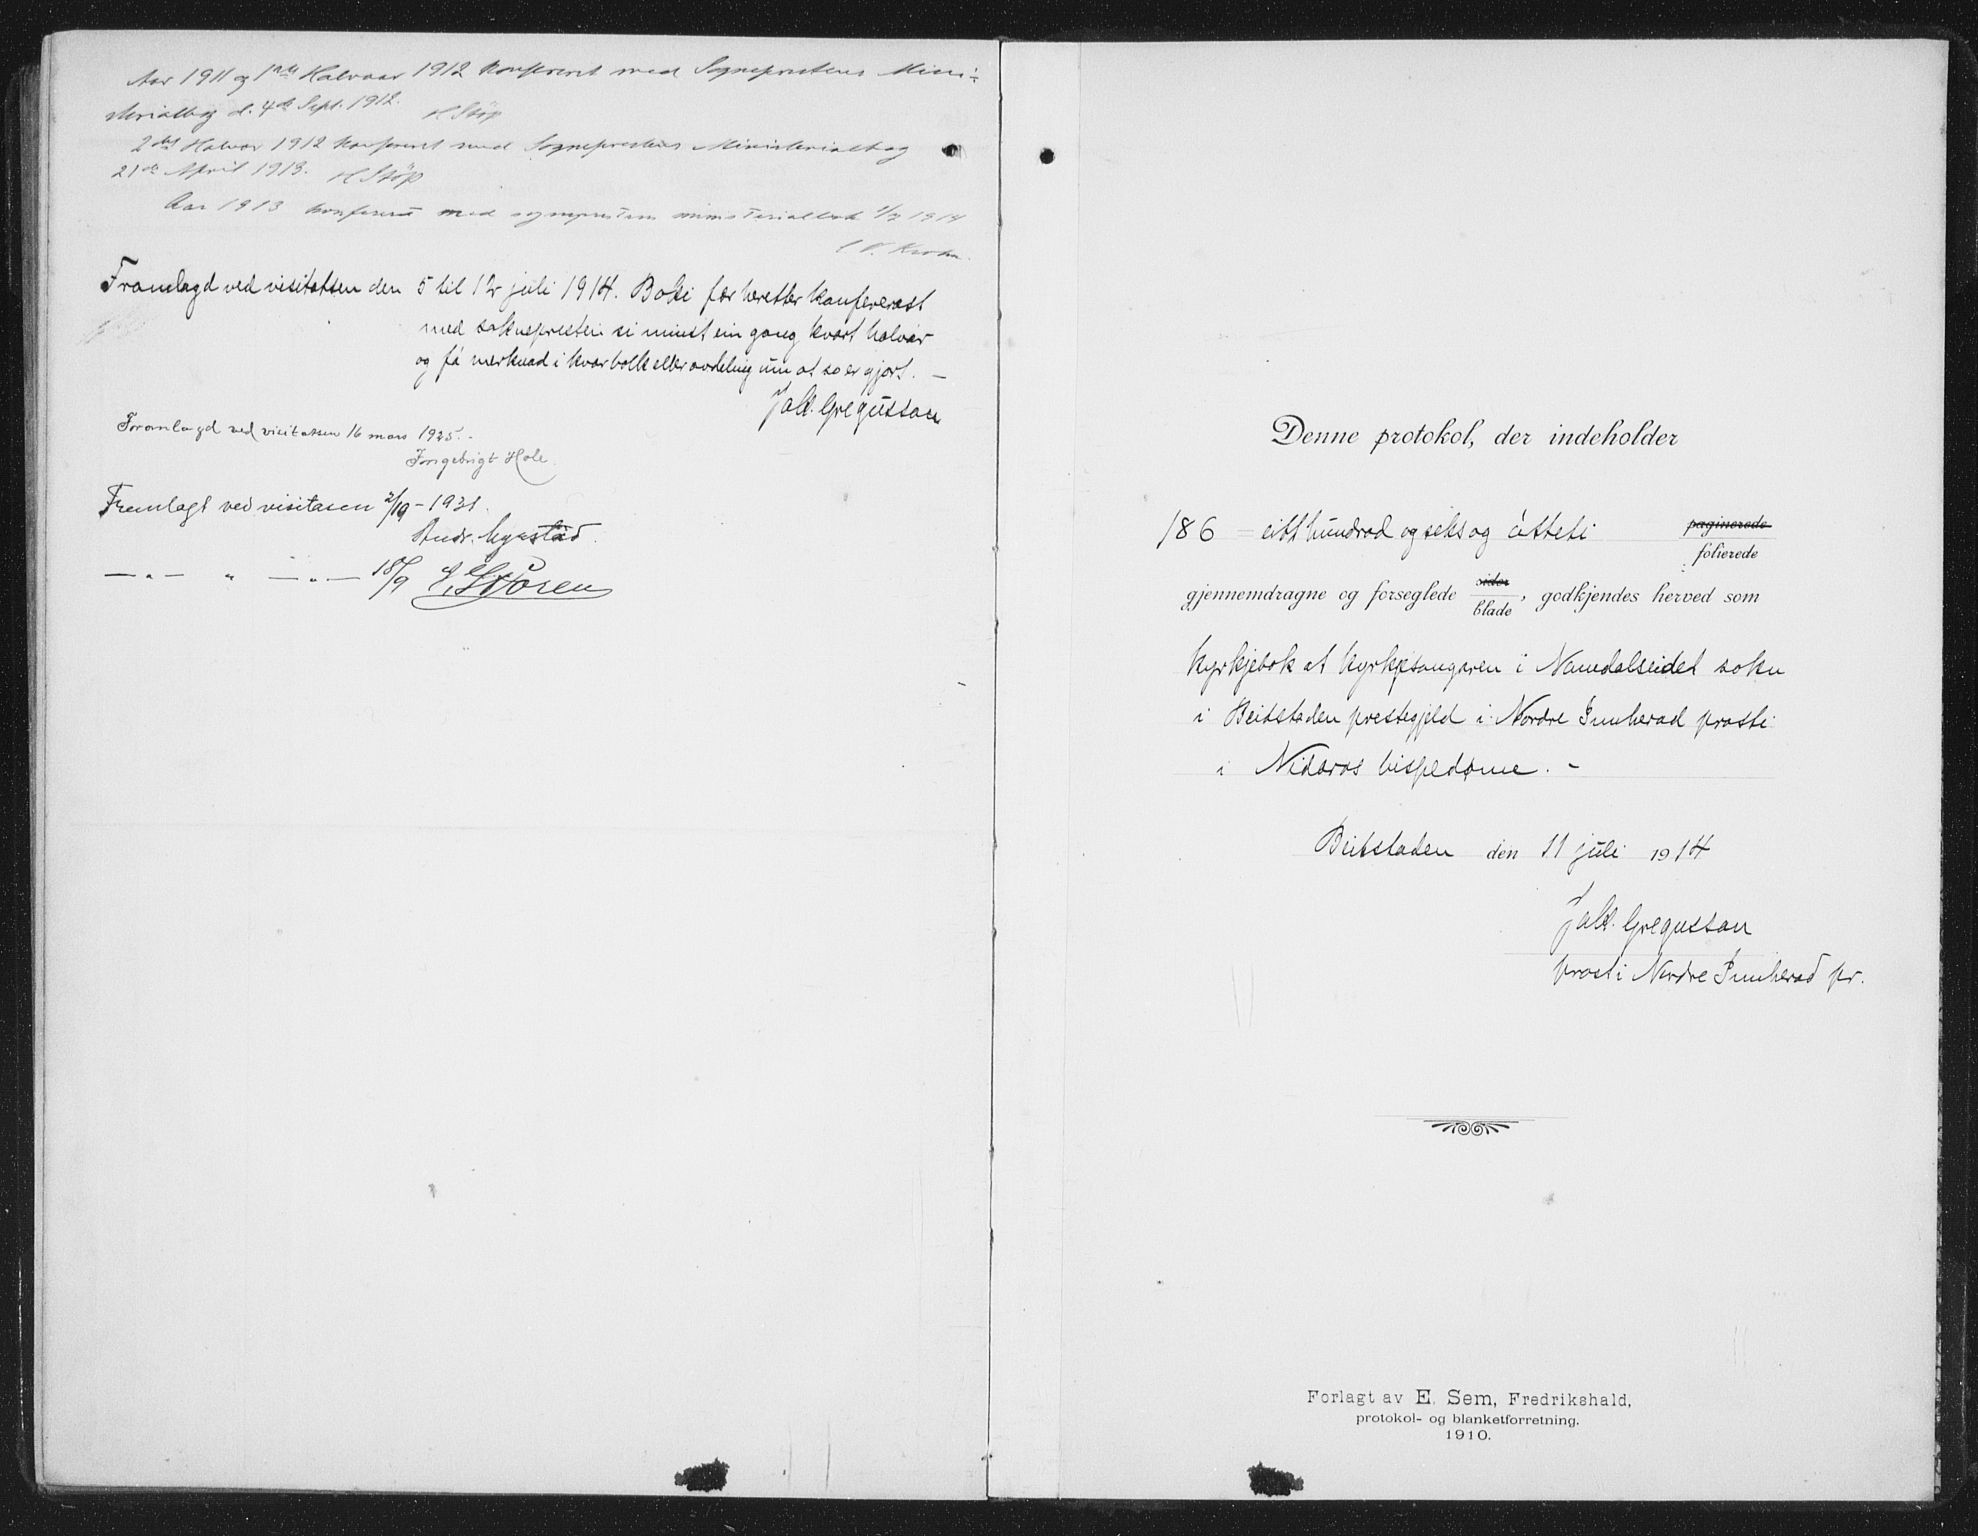 Aar 1911 og 1ste Halvaar 1912 konfereret med Sogneprestens Mini-
sterialbog d. 4de Sept. 1912. H Støp
2det Halvar 1912 konfereret med Sogneprestens Ministerialbog
21de April 1913. H Støp
Aar 1913 konferert med sogneprestens ministerialbok 1914
Krohn.
Framlagd ved visitatsen den 5 til 12 juli 1914. Boki fær heretter konfererast
med soknepresten si minst ein gong kvart halvår
og få merknad i kvar bolk eller avdeling um at so er gjort. —
Jak. Gregusson
Framlagd ved visitatsen 16 mars 1925. -
Ingebrigt Hole.
Fremlagt ved visitasen 2/10 - 1931.
Andr. 
— " — " — " — 18/9 E. Støren
Denne protokol, der indeholder
186 = eitt hundrad og seks og åtteti paginerede
folierede
gjennemdragne og forseglede sider
blade, godkjendes herved som
kyrkjebok åt kyrkjesongaren i Namdalseidet sokn
i Beitstaden prestegjeld i Nordre Innherad prosti
i Nidaros bispedøme. -
Beitstaden den 11 juli 1914
Jak. Gregusson
prost i Nordre Innherad pr.
Forlagt av E. Sem, Fredrikshald,
protokol- og blanketforretning.
1910.